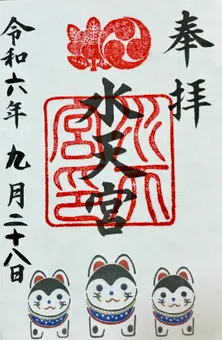 奉拝
水天宮
令和六年 九月二十八日
水天宮印